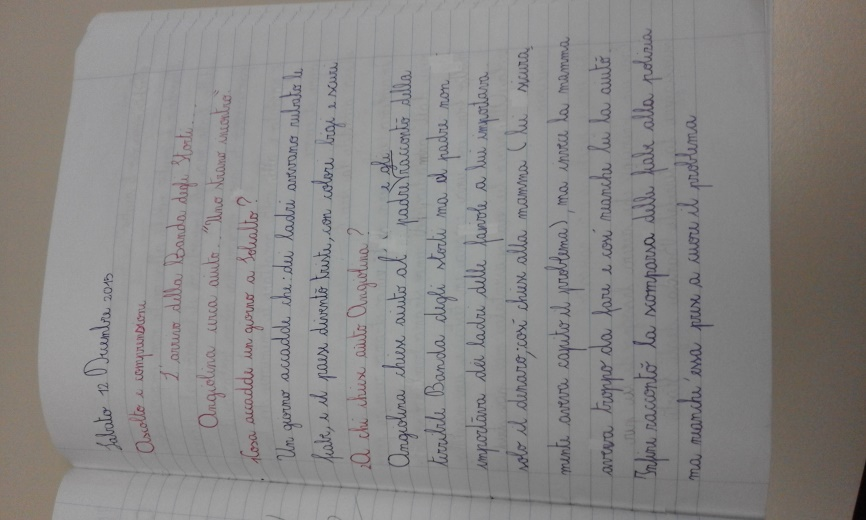 Sabato 12 Dicembre 2015
Ascolto e comprensione
L'arrivo della Banda degli Storti...
Angiolina cerca aiuto... "Uno strano incontro"
Cosa accadde un giorno a
Un giorno accadde che: dei ladri avevano rubato le
fiabe, e il paese diventò triste, con colori bigi e scuri
A chi chiese aiuto Angiolina?
Angiolina chiese aiuto al padre e gli raccontò della
terribile Banda degli storti ma al padre non
importava dei ladri delle favole a lui importava
solo il denaro; così chiese alla mamma (lui sicura,
mente aveva capito il problema), ma invece la mamma
aveva troppo da fare e così neanche lei la aiutò.
Infine raccontò la scomparsa delle fiabe alla polizia
ma neanche essa prese a cuore il problema